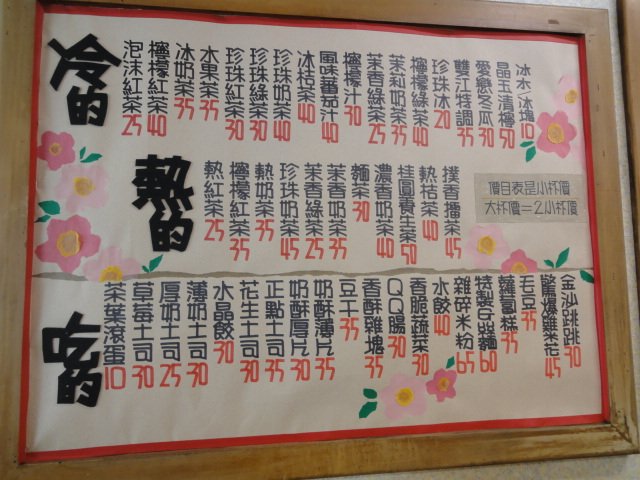 冷的
泡沫紅茶25
檸檬紅茶40
冰奶茶35
水果茶35
珍珠紅茶30
珍珠綠茶30
珍珠奶茶40
冰桔茶40
風味蕃茄汁40
檸檬汁30
茉香綠茶25
茉莉奶茶35
檸檬綠茶40
珍珠冰20
雙江特調35
愛戀冬瓜30
晶玉清檸50
冰水.冰塊10
熱的
熱紅茶25
檸檬紅茶35
熱奶茶35
珍珠奶茶45
茉香綠茶25
茉香奶茶35
麵茶30
濃香奶茶40
桂圓棗茶50
熱桔茶40
撲香擂茶45
價目表是小杯價
大杯價=2小杯價
吃的
茶葉滾蛋10
草莓土司30
厚奶土司25
薄奶土司30
水晶餃30
花生土司30
正點土司35
奶酥厚片30
奶酥薄片35
豆干35
香酥雞塊35
QQ腸30
香脆蔬菜30
水餃40
雜碎米粉65
特製乌麵60
蘿蔔糕35
毛豆35
驚爆雞米花45
金沙跳跳30